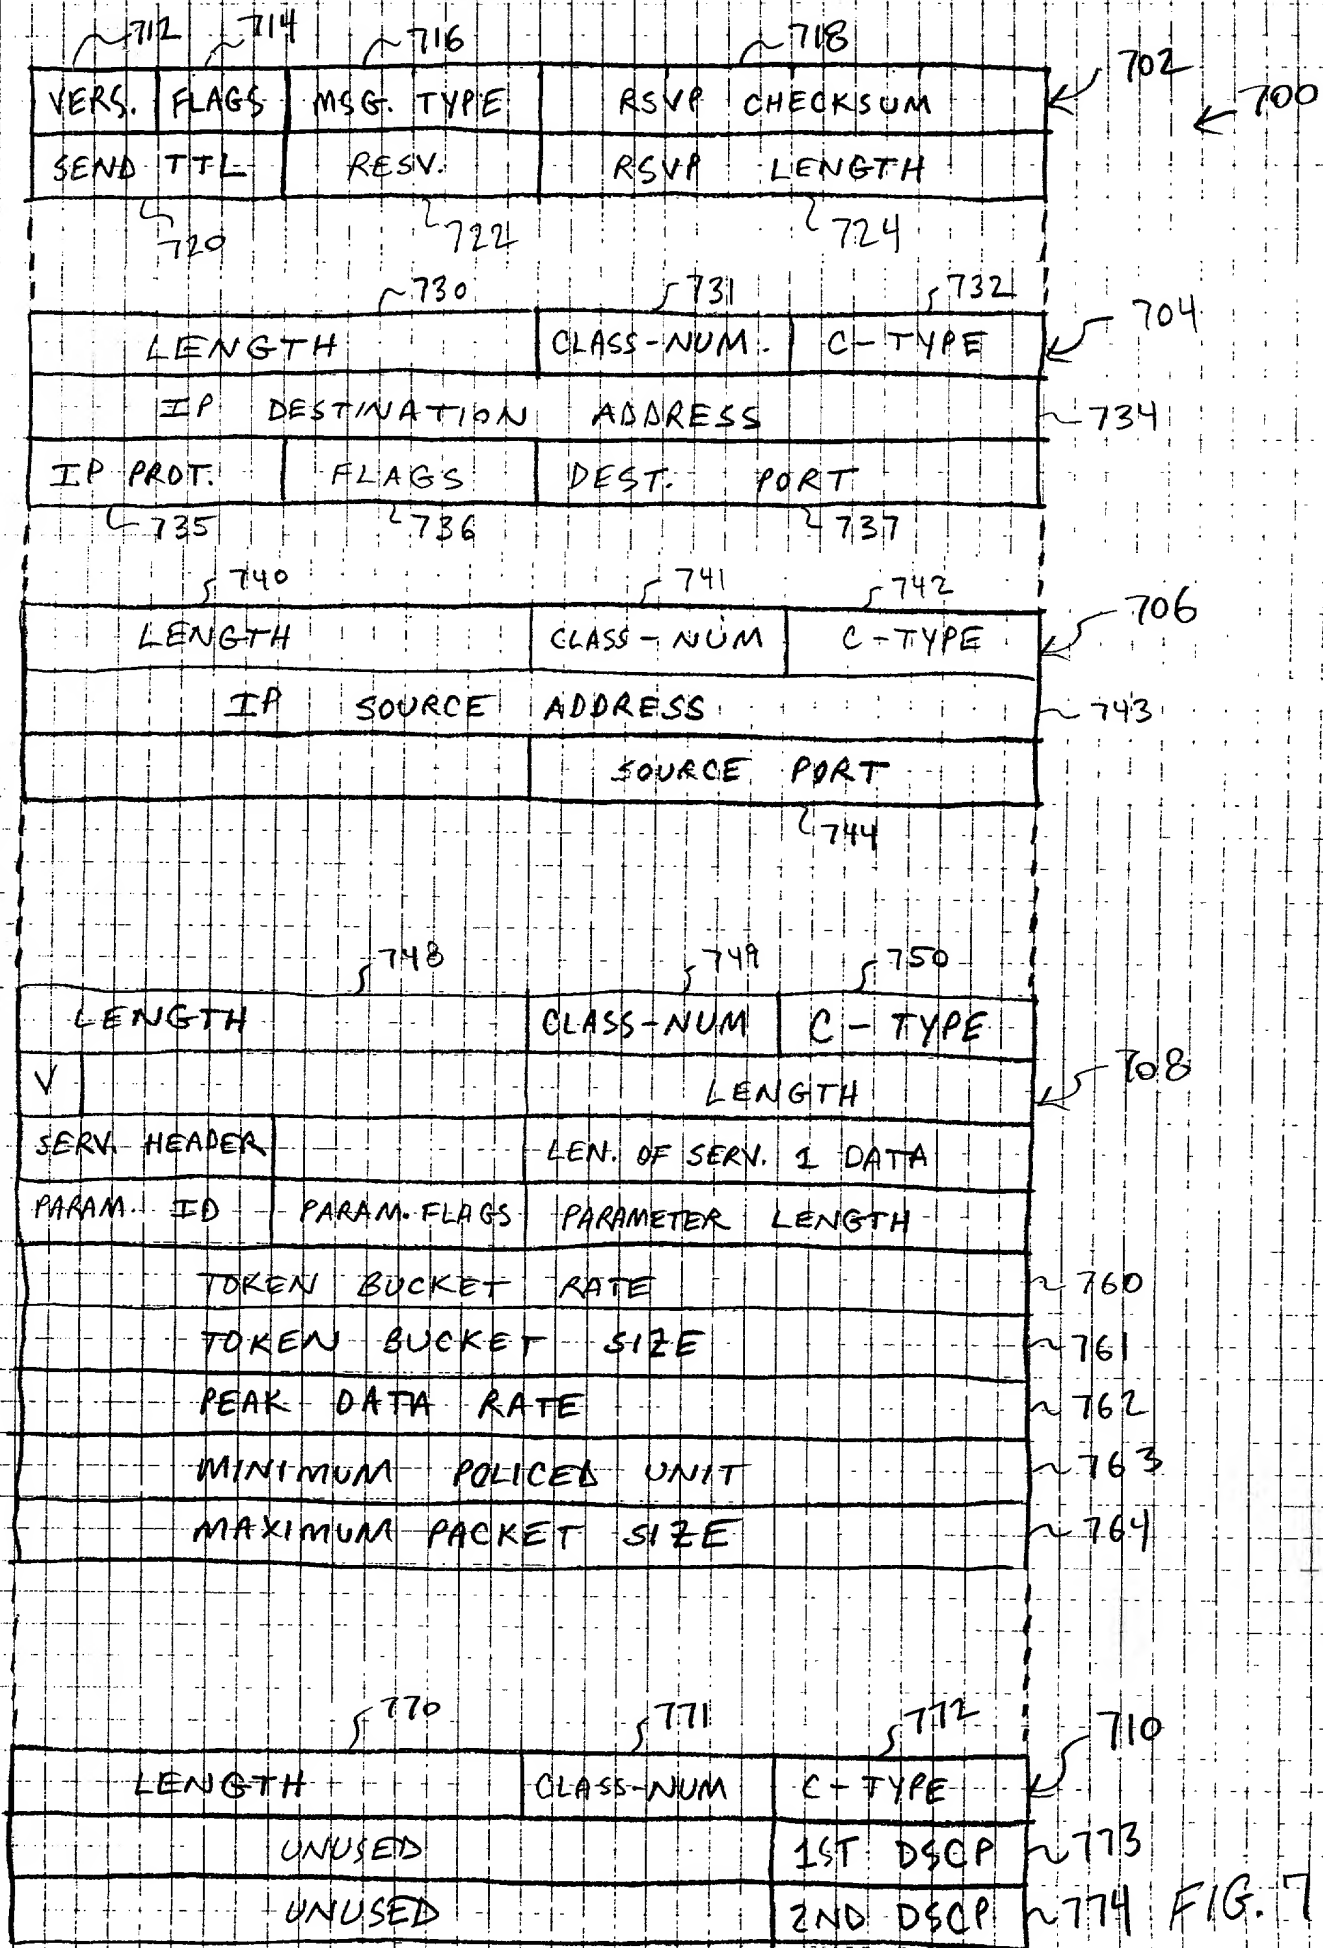 712 714 716 718
702
VERS. FLAGS MSG. TYPE RSVP CHECKSUM
700
SEND TTL RESV. RSVP LENGTH
720 722 724
730 731 732
704
LENGTH CLASS-NUM. C-TYPE
IP DESTINATION ADDRESS 734
IP PROT. FLAGS DEST. PORT
735 736 737
740 741 742
706
LENGTH CLASS-NUM C-TYPE
IP SOURCE ADDRESS 743
SOURCE PORT
744
748 749 750
LENGTH CLASS-NUM C-TYPE
708
V LENGTH
SERV. HEADER LEN. OF SERV. 1 DATA
PARAM. ID PARAM. FLAGS PARAMETER LENGTH
TOKEN BUCKET RATE 760
TOKEN BUCKET SIZE 761
PEAK DATA RATE 762
MINIMUM POLICED UNIT 763
MAXIMUM PACKET SIZE 764
770 771 772
710
LENGTH CLASS-NUM C-TYPE
UNUSED 1ST DSCP 773
UNUSED 2ND DSCP 774
FIG. 7